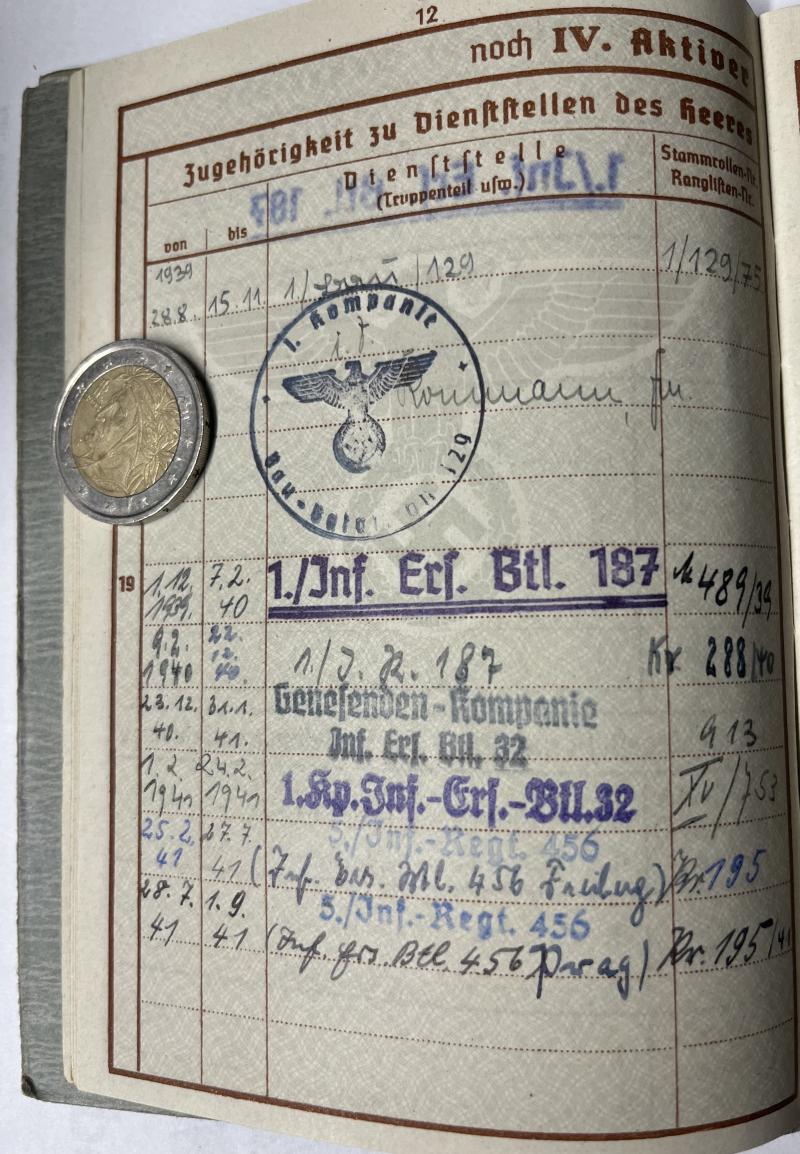 12
noch IV. Aktiver
Zugehörigkeit zu Dienststellen des Heeres
von
bis
Dienststelle
(Truppenteil usw.)
Stammrollen-Nr.
Ranglisten-Nr.
1./Inf. Ers. Btl. 187
1939
28.8. 15.11. 1/ /129 1/129/75
1. Kompanie
Bau-Bataillon 129
19
1.12. 1939. 7.2. 40 1./Inf. Ers. Btl. 187 489/39
9.2. 1940 22. 12. 40. 1./J. R. 187 Nr. 288/40
23.12. 40. 31.1. 41. Genesenden-Kompanie
Inf. Ers. Btl. 32 913
1.2. 1941 24.2. 1941 1.Kp.Inf.-Ers.-Btl.32 /753
25.2. 41 27.7. 41 5./Inf.-Regt. 456
(Inf. Ers. Btl. 456 Freiburg) Nr. 195
28.7. 41 1.9. 41 5./Inf.-Regt. 456
(Inf. Ers. Btl. 456 Prag) Nr. 195/41